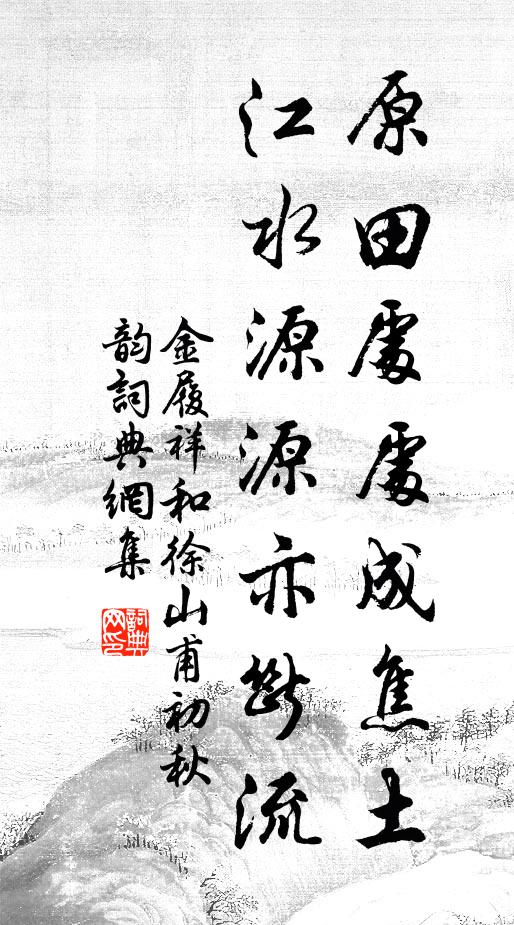 原田處處成焦土
江水源源亦斷流
金履祥和徐山甫初秋
韵詞典網集
詞典網印